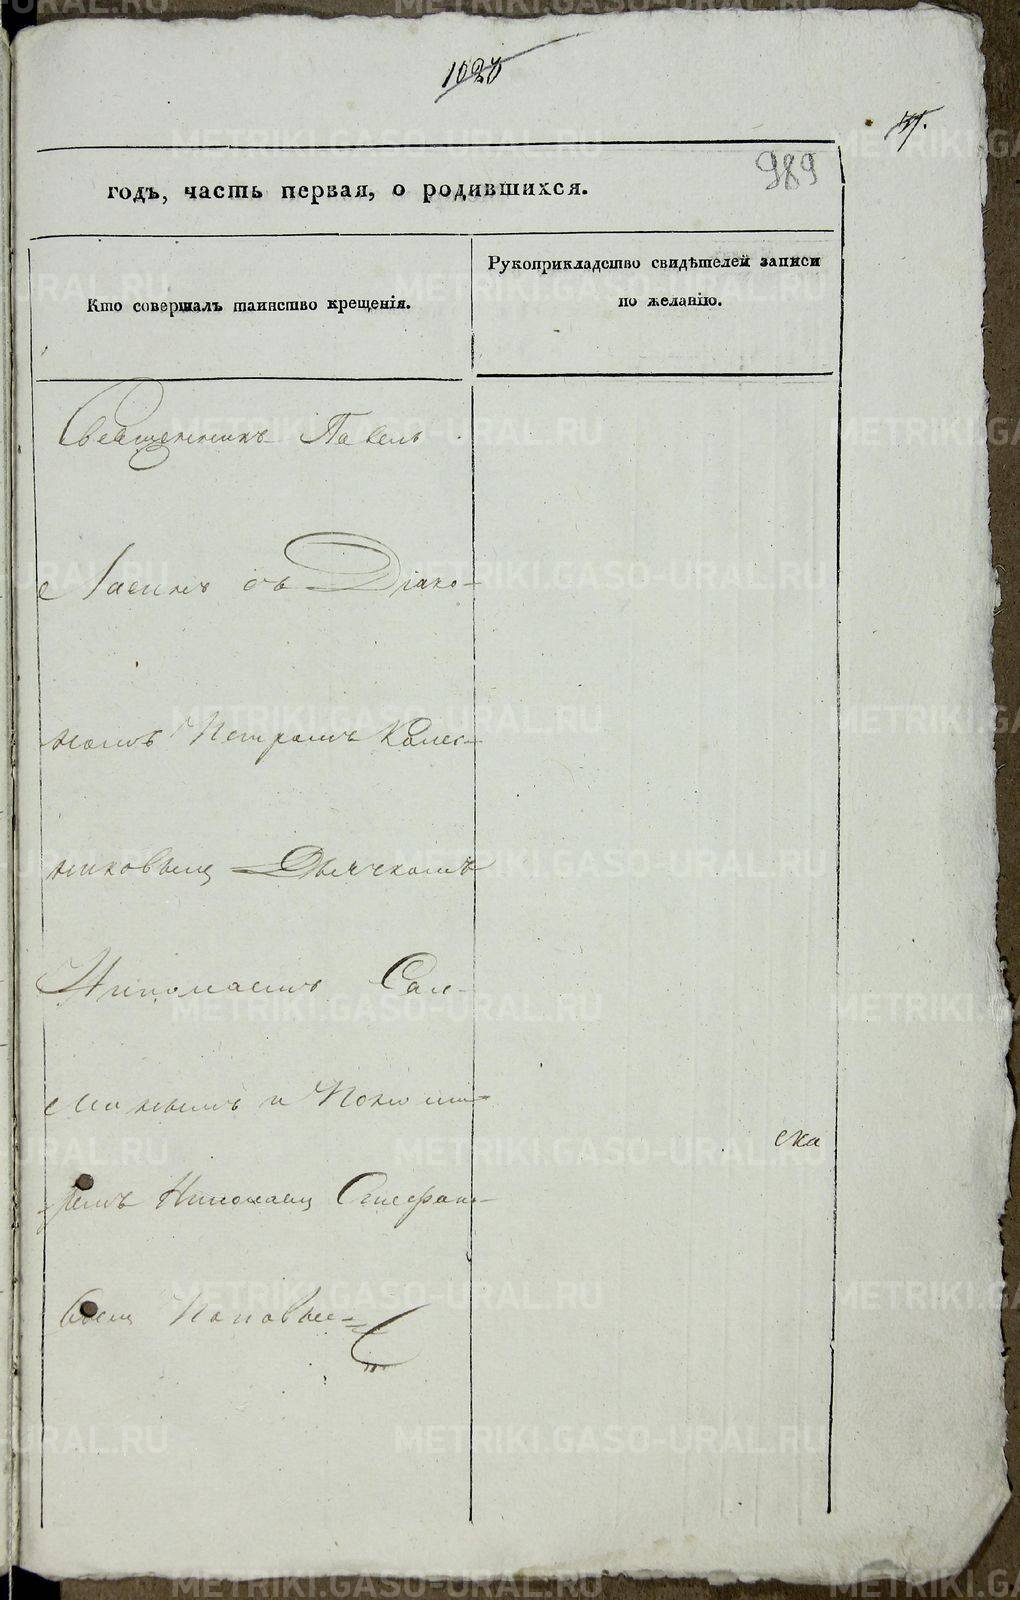 1020
989
годъ, часть первая, о родившихся.
Кто совершалъ таинство крещенія.
Рукоприкладство свидѣтелей записи
по желанію.
Священникъ Павелъ
съ Діако-
номъ Петромъ Колес-
никовымъ Дьячкомъ
Николаемъ
и Поно-
Николаемъ Стефано-
вымъ Поповымъ
ска
METRIKI.GASO-URAL.RU